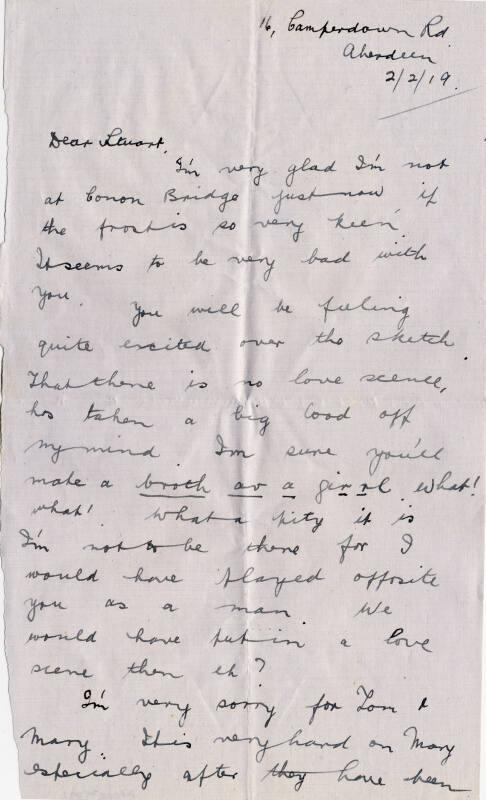 16, Camperdown Rd.
Aberdeen
2/2/19.
Dear Stuart,
I'm very glad I'm not
at Conon Bridge just now if
the frost is so very keen.
It seems to be very bad with
you. You will be feeling
quite excited over the sketch.
That there is no love scene,
has taken a big load off
my mind. I'm sure you'll
make a broth av a girrl. what!
what! What a pity it is
I'm not to be there for I
would have played opposite
you as a man. We
would have put in a love
scene then eh?
I'm very sorry for Tom &
Mary. It is very hard on Mary
especially after they have been